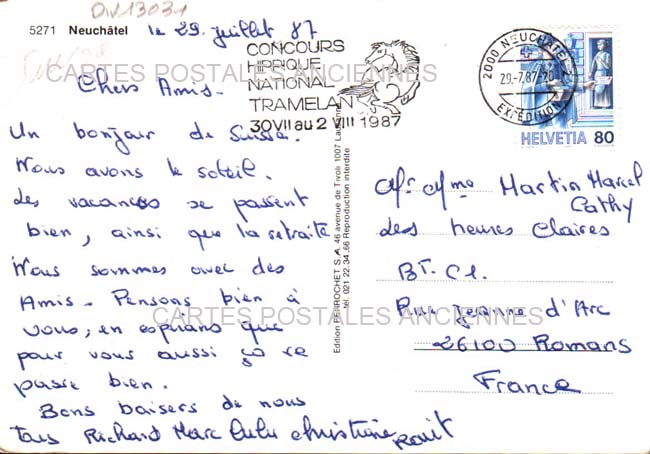 DV13031
5271 Neuchâtel
le 29 juillet 87
CARTES POSTALES ANCIENNES
CONCOURS
HIPPIQUE
NATIONAL
TRAMELAN
30 VII au 2 VIII 1987
2000 NEUCHÂTEL 2
29.-7.87-20
EXPÉDITION
HELVETIA 80
Chers Amis-
Un bonjour de Suisse.
Nous avons le soleil.
Les vacances se passent
bien, ainsi que la retraite
Nous sommes avec des
Amis- Pensons bien à
vous, en espérans que
pour vous aussi ça ce
passe bien.
Bons baisers de nous
Tous Richard Marc Lulu Christiane
Edition PERROCHET S.A. 46 avenue de Tivoli 1007 Lausanne
tél. 021 22.34.66 Reproduction interdite
Mr Mme Martin Marcel
Cathy
des heures Claires
BT. C1.
Rue Jeanne d'Arc
26100 Romans
France
CARTES POSTALES ANCIENNES